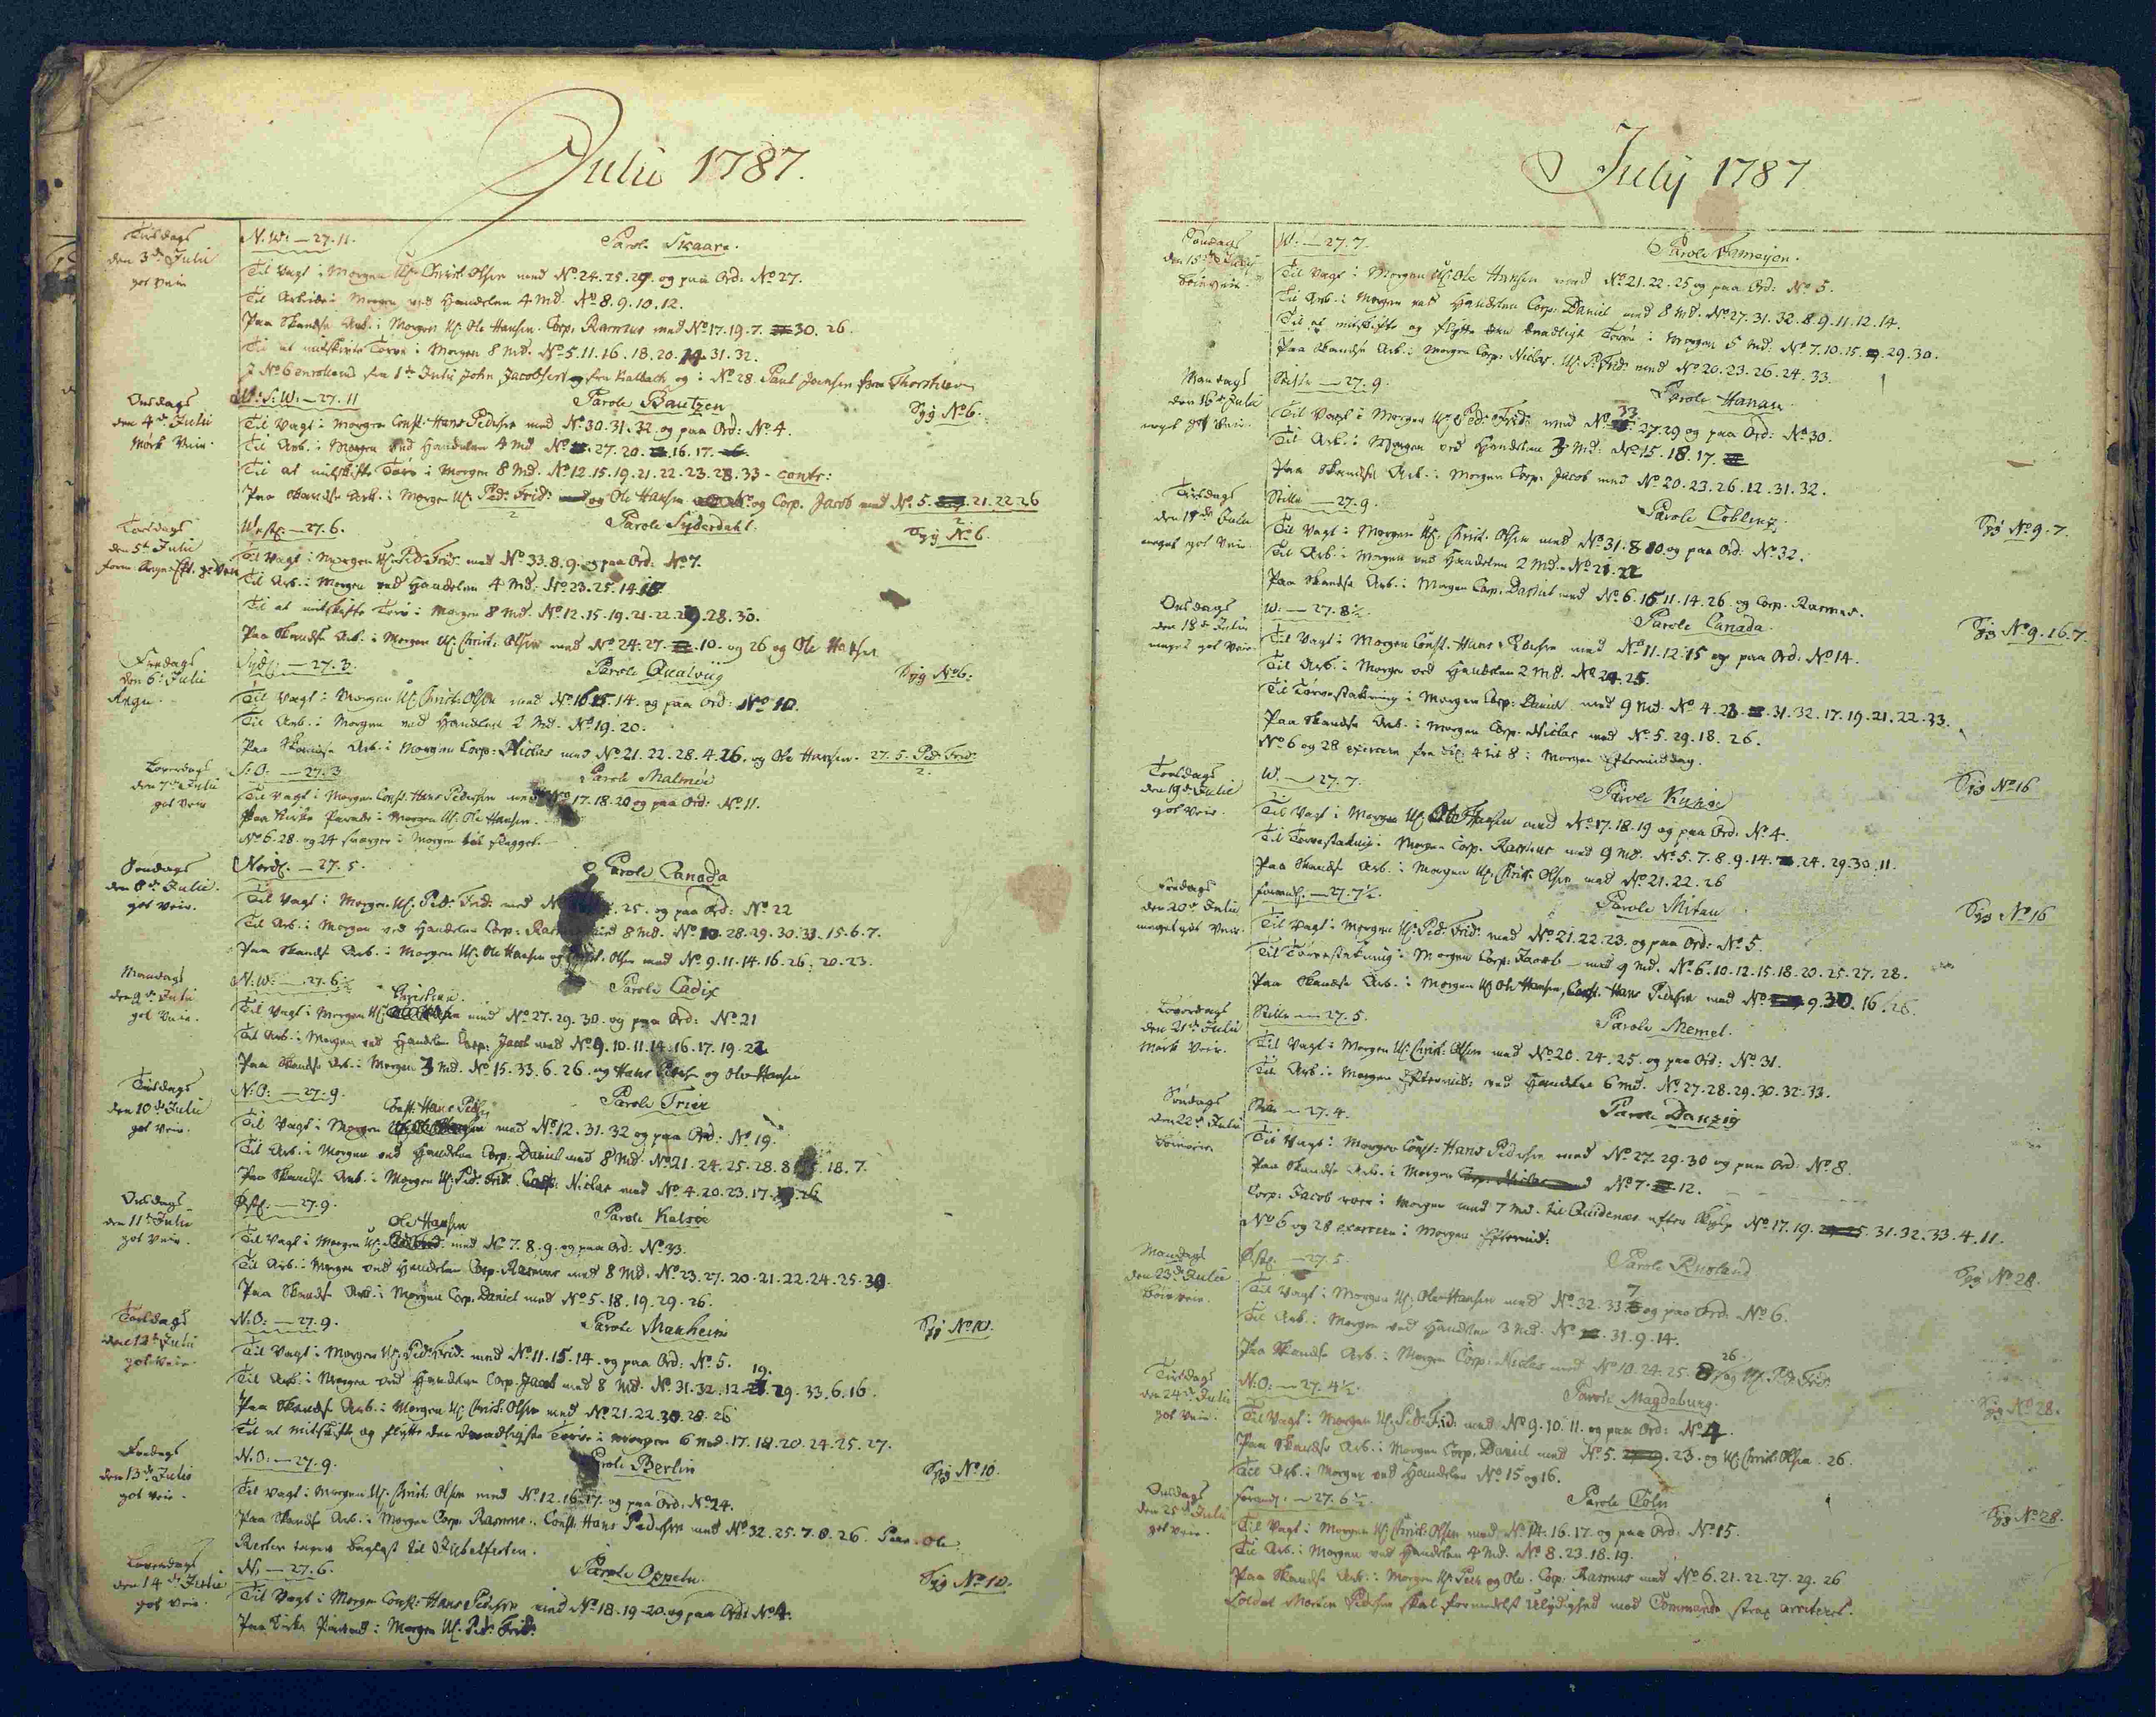 Julii 1787.
Tiisdags
den 3de Julii
got Veir
N.W: — 27.11.
Parole Skaare.
Til Vagt i Morgen Uf. Christ: Olsen med No 24.25.29. og paa Ord: No 27.
Til Arbeide i Morgen ved Handelen 4 Md. No 8.9.10.12.
Paa Skandse Arb. i Morgen Uf. Ole Hansen. Corp. Rasmus med No 17.19.7. 30. 26.
Til at indskifte Tørv i Morgen 8 Md. No 5.11.16.18.20.14.31.32.
I No 6 enrolleres fra 1te Julii John Jacobsen fra Kalbach og i No 28. Paul Joensen fra Thorshavn
Onsdags
den 4de Julii
Mørk Veir.
W:S:W: — 27.11
Parole Bautzen
Syg No 6.
Til Vagt i Morgen Const. Hans Pedersen med No 30.31.32 og paa Ord: No 4.
Til Arb. i Morgen ved Handelen 4 Md No 27.20. 16.17.
Til at indskifte Tørv i Morgen 8 Md. No 12.15.19.21.22.23.28.33 - contr:
Paa Skandse Arb. i Morgen Uf. Ped: Frid: og Ole Hansen og Corp. Jacob med No 5. 21.22.26
Torsdags
den 5te Julii
Form. Regn Eft. got Veir
Westl. — 27.6.
Parole Syderdahl.
Syg No 6.
Til Vagt i Morgen Uf. Ped: Frid: med No 33.8.9. og paa Ord: No 7.
Til Arb. i Morgen ved Handelen 4 Md: No 23.25.14.18
Til at indskifte Tørv i Morgen 8 Md. No 12.15.19.21.22.29.28.30.
Paa Skandse Arb. i Morgen Uf. Christ: Olsen med No 24.27. 10. og 26 og Ole Hansen
Fredags
den 6te Julii
Regn.
Sydl: — 27.3.
Parole Qualviig
Syg No 6.
Til Vagt i Morgen Uf. Christ: Olsen med No 16.15.14. og paa Ord: No 10.
Til Arb. i Morgen ved Handelen 2 Md. No 19.20.
Paa Skandse Arb. i Morgen Corp: Niclas med No 21.22.28.4.26. og Ole Hansen. 27.5. Ped: Frid:
Løverdags
den 7de Julii
got Veir
S:O: — 27.3
Parole Malmöe
Til Vagt i Morgen Const. Hans Pedersen med No 17.18.20 og paa Ord: No 11.
Paa Kirke Parade i Morgen Uf. Ole Hansen.
No 6.28. og 24 sværger i Morgen til Flagget.
Søndags
den 8de Julii.
got Veir.
Nordl. — 27.5.
Parole Canada
Til Vagt i Morgen Uf. Ped: Frid: med No 25. og paa Ord: No 22
Til Arb. i Morgen ved Handelen Corp: Rasmus med 8 Md. No 10.28.29.30.33.15.6.7.
Paa Skandse Arb. i Morgen Uf. Ole Hansen og Christ. Olsen med No 9.11.14.16.26.20.23.
Mandags
den 9de Julii
got Veir.
N.W: — 27.6½
Parole Cadix
Christian.
Til Vagt i Morgen Uf. med No 27.29.30. og paa Ord: No 21
Til Arb. i Morgen ved Handelen Corp: Jacob med No 9.10.11.14.16.17.19.22
Paa Skandse Arb. i Morgen 3 Md. No 15.33.6.26. og Hans Peders. og Ole Hansen
Tiisdags
den 10de Julii
got Veir.
N:O: — 27.9.
Parole Trier
Const: Hans Peders.
Til Vagt i Morgen med No 12.31.32 og paa Ord: No 19.
Til Arb. i Morgen ved Handelen Corp: Daniel med 8 Md. No 21.24.25.28.8. 18.7.
Paa Skandse Arb. i Morgen Uf. Ped: Frid: Corp: Niclas med No 4.20.23.17. 26
Onsdags
den 11te Julii
got Veir.
Østl. — 27.9.
Parole Kalsöe
Ole Hansen
Til Vagt i Morgen Uf. med No 7.8.9. og paa Ord: No 33.
Til Arb. i Morgen ved Handelen Corp. Rasmus med 8 Md. No 23.27.20.21.22.24.25.30.
Paa Skandse Arb. i Morgen Corp. Daniel med No 5.18.19.29.26.
Torsdags
den 12te Julii
got Veir.
N:O: — 27.9.
Parole Manheim
Syg No 10.
Til Vagt i Morgen Uf. Ped: Frid: med No 11.15.14. og paa Ord: No 5.
19.
Til Arb. i Morgen ved Handelen Corp. Jacob med 8 Md. No 31.32.12. 29.33.6.16.
Paa Skandse Arb. i Morgen Uf. Christ: Olsen med No 21.22.30.28.26
Til at indskifte og flytte den Tørv i Morgen 6 Md. 17.18.20.24.25.27.
Fredags
den 13de Julii
got Veir.
N.O: — 27.9.
Parole Berlin
Syg No 10.
Til Vagt i Morgen Uf. Christ: Olsen med No 12.16.17. og paa Ord: No 24.
Paa Skandse Arb. i Morgen Corp. Rasmus, Const: Hans Pedersen med No 32.25.7.8.26.
Løverdags
den 14de Julii
got Veir.
N. — 27.6.
Parole Oppeln.
Syg No 10.
Til Vagt i Morgen Const: Hans Pedersen med No 18.19.20. og paa Ord: No 4.
Paa Kirke Parade i Morgen Uf. Ped: Frid:
July 1787
Søndags
den 15de July
W. — 27.7.
Til Vagt i Morgen Uf. Ole Hansen med No 21.22.25 og paa Ord: No 5.
Til Arb. i Morgen ved Handelen Corp: Daniel med 8 Md. No 27.31.32.8.9.11.12.14.
Til at indskifte og flytte Tørv i Morgen 6 Md: No 7.10.15. 29.30.
Paa Skandse Arb. i Morgen Corp: Niclas. Uf. P. Frid: med No 20.23.26.24.33.
Mandags
den 16de Julii
meget got Veir.
Stille — 27.9.
Parole Hanau
33
Til Vagt i Morgen Uf. Ped: Frid: med No 27.29 og paa Ord: No 30.
Til Arb. i Morgen ved Handelen 3 Md: No 15.18.17.
Paa Skandse Arb. i Morgen Corp: Jacob med No 20.23.26.12.31.32.
Tiisdags
den 17de Julii
meget got Veir
Stille — 27.9.
Parole Coblenz
Syg No 9.7.
Til Vagt i Morgen Uf. Christ. Olsen med No 31.8.10 og paa Ord: No 32.
Til Arb. i Morgen ved Handelen 2 Md. No 21.22
Paa Skandse Arb. i Morgen Corp. Daniel med No 6.15.11.14.26 og Corp. Rasmus.
Onsdags
den 18de Julii
meget got Veir
W. — 27.8½
Parole Canada.
Syg No 9.16.7.
Til Vagt i Morgen Const. Hans Pedersen med No 11.12.15 og paa Ord: No 14.
Til Arb. i Morgen ved Handelen 2 Md. No 24.25.
Til Tørvestakning i Morgen Corp: Daniel med 9 Md. No 4.23. 31.32.17.19.21.22.33.
Paa Skandse Arb. i Morgen Corp. Niclas med No 5.29.18.26.
No 6 og 28 exercere fra Kl. 4 til 8 i Morgen Eftermiddag.
Torsdags
den 19de Julii
got Veir.
W. — 27.7.
Syg No 16
Til Vagt i Morgen Uf. Ole Hansen med No 17.18.19 og paa Ord: No 4.
Til Tørvestakning i Morgen Corp. Rasmus med 9 Md. No 5.7.8.9.14. 24.29.30.11.
Paa Skandse Arb. i Morgen Uf. Christ. Olsen med No 21.22.26
Fredags
den 20de Julii
meget got Veir.
— 27.7½.
Parole Mitau
Syg No 16
Til Vagt i Morgen Uf. Ped: Frid: med No 21.22.23. og paa Ord: No 5.
Til Tørvestakning i Morgen Corp: Jacob med 9 Md. No 6.10.12.15.18.20.25.27.28.
Paa Skandse Arb. i Morgen Uf. Ole Hansen, Const. Hans Pedersen med No 9.30.16.26.
Løverdags
den 21de Julii
Mørk Veir.
Stille — 27.5.
Parole Memel.
Til Vagt i Morgen Uf. Christ: Olsen med No 20.24.25. og paa Ord: No 31.
Til Arb. i Morgen Eftermid: ved Handelen 6 Md. No 27.28.29.30.32.33.
Søndags
den 22de Julii
Stille — 27.4.
Parole Danzig
Til Vagt i Morgen Const: Hans Pedersen med No 27.29.30 og paa Ord: No 8.
Paa Skandse Arb. i Morgen No 7. 12.
Corp: Jacob roer i Morgen med 7 Md. til Quidenæs efter No 17.19. 31.32.33.4.11.
No 6 og 28 exercere i Morgen Eftermid:
Mandags
den 23de Julii
Østl. — 27.5.
Parole Rusland
Syg No 28.
7
Til Vagt i Morgen Uf. Ole Hansen med No 32.33. og paa Ord: No 6.
Til Arb. i Morgen ved Handelen 3 Md. No 31.9.14.
26
Paa Skandse Arb. i Morgen Corp: Niclas med No 10.24.25. og Uf. Ped: Frid:
Tiisdags
den 24de Julii
got Veir.
N:O: — 27.4½.
Parole Magdeburg.
Syg No 28.
Til Vagt i Morgen Uf. Ped: Frid: med No 9.10.11. og paa Ord: No 4.
Paa Skandse Arb. i Morgen Corp. Daniel med No 5. 23. og Uf. Christ: Olsen. 26.
Til Arb. i Morgen ved Handelen No 15 og 16.
Onsdags
den 25de Julii
got Veir.
— 27.6½.
Parole Cöln
Syg No 28.
Til Vagt i Morgen Uf. Christ: Olsen med No 14.16.17. og paa Ord: No 15.
Til Arb. i Morgen ved Handelen 4 Md. No 8.23.18.19.
Paa Skandse Arb. i Morgen Uf. Peder og Ole. Corp. Rasmus med No 6.21.22.27.29.26
Soldat Morten Pedersen skal formedelst Ulydighed mod Commando strax arriteres.